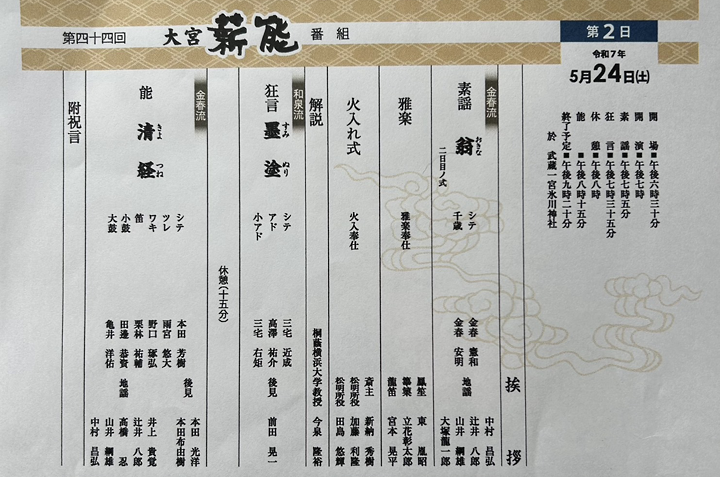 第四十四回 大宮薪能 番組
第2日
令和7年
5月24日(土)
開場■午後六時三十分
開演■午後七時
素謡■午後七時五分
狂言■午後七時三十五分
休憩■午後八時
能■午後八時十五分
終了予定■午後九時二十分
於 武蔵一宮氷川神社
挨拶
金春流
素謡 翁 おきな 二日目ノ式
シテ 金春 憲和
千歳 金春 安明
地謡 中村 昌弘
辻井 八郎
山井 綱雄
大塚龍一郎
雅楽
雅楽奉仕
鳳笙 東 胤昭
篳篥 立花彰太郎
龍笛 宮本 晃平
火入れ式
火入奉仕
斎主 新納 秀樹
松明所役 加藤 利隆
松明所役 田島 悠輝
解説
桐蔭横浜大学教授 今泉 隆裕
和泉流
狂言 墨塗 すみ ぬり
シテ 三宅 近成
アド 高澤 祐介
小アド 三宅 右矩
後見 前田 晃一
休憩(十五分)
金春流
能 清経 きよ つね
シテ 本田 芳樹
ツレ 雨宮 悠大
ワキ 野口 琢弘
笛 栗林 祐輔
小鼓 田邊 恭資
大鼓 亀井 洋佑
後見 本田 光洋
本田布由樹
地謡 井上 貴覚
辻井 八郎
高橋 忍
山井 綱雄
中村 昌弘
附祝言